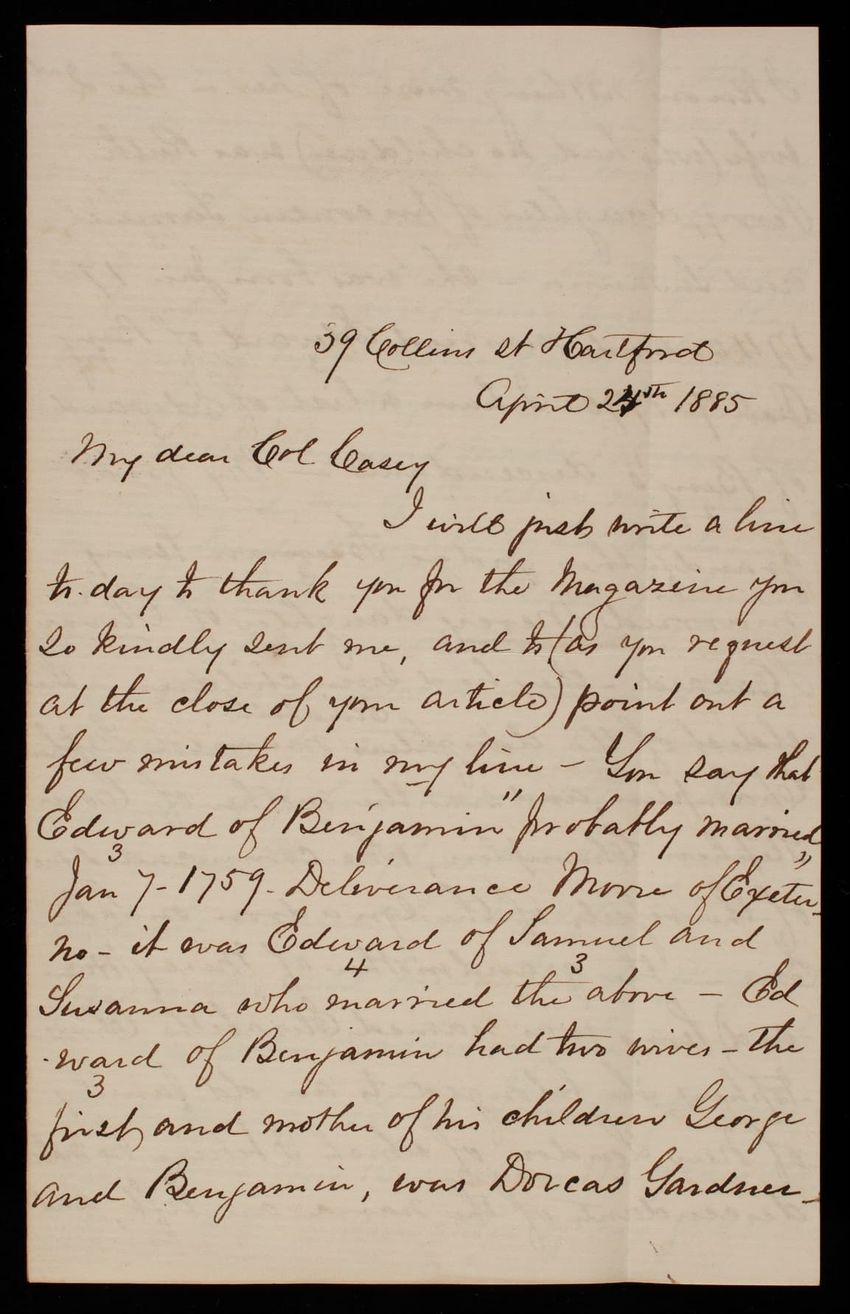 39 Collins st Hartford
April 24th 1885
My dear Col Casey
I will just write a line
to-day to thank you for the Magazine you
so kindly sent me, and to (as you request
at the close of your article) point out a
few mistakes in my line - You say that
Edward of Benjamin "probably married
3
Jan 7-1759- Deliverance Moore of Exeter"-
no - it was Edward of Samuel and
4 3
Susanna who married the above - Ed
-ward of Benjamin had two wives - the
3
first, and mother of his children George
and Benjamin, was Dorcas Gardner-